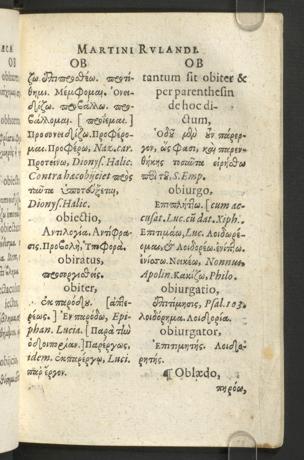 MARTINI RVLANDI
OB
ζω. ἐπιπροθέω. προτί-
θημι. Μέμφομαι. Ὀνει-
δίζω. προβάλλω. περι-
βάλλομαι. [προΐεμαι.]
Προσονειδίζω. Προφέρο-
μαι. Προφέρω, Naz. car.
Προτείνω, Dionys. Halic.
Contra hæc obijciet πρὸς
ταῦτα ὑποτεύξεται,
Dionys. Halic.
obiectio,
Ἀντιλογία. Ἀντίφρα-
σις. Προβολή, Ὑποφορά.
obiratus,
προσοργισθείς.
obiter,
ἐκ παρόδου. [ἀπε-
ρέως.] Ἐν παρόδῳ, Epi-
phan. Lucia. [Παρὰ τὴν
ὁδοιπορίαν.] Παρέργως,
idem. ἐκ παρέργου, Luci.
πάρεργον.
OB
tantum sit obiter &
per parenthesin
de hoc di-
ctum,
Ὁδοῦ μὲν ἓν πάρερ-
γον, ὥς φασι, καὶ παρεν-
θήκης τοσαῦτα εἰρήσθω
περὶ τοῦ, S. Emp.
obiurgo,
Ἐπιπλήττω. [cum ac-
cusat. Luc. cũ dat. Xiph.
Ἐπιτιμάω, Luc. Λοιδωρέ-
ομαι, & Λοιδορέω. ἐνίπτω.
ἐνίσσω. Νεικέω, Nonnus,
Apolin. Κακίζω, Philo.
obiurgatio,
Ἐπιτίμησις, Psal. 103.
Λοιδόρημα. Λοιδορία.
obiurgator,
Ἐπιτιμητής. Λοιδο-
ρητής.
¶ Oblædo,
πηρόω,